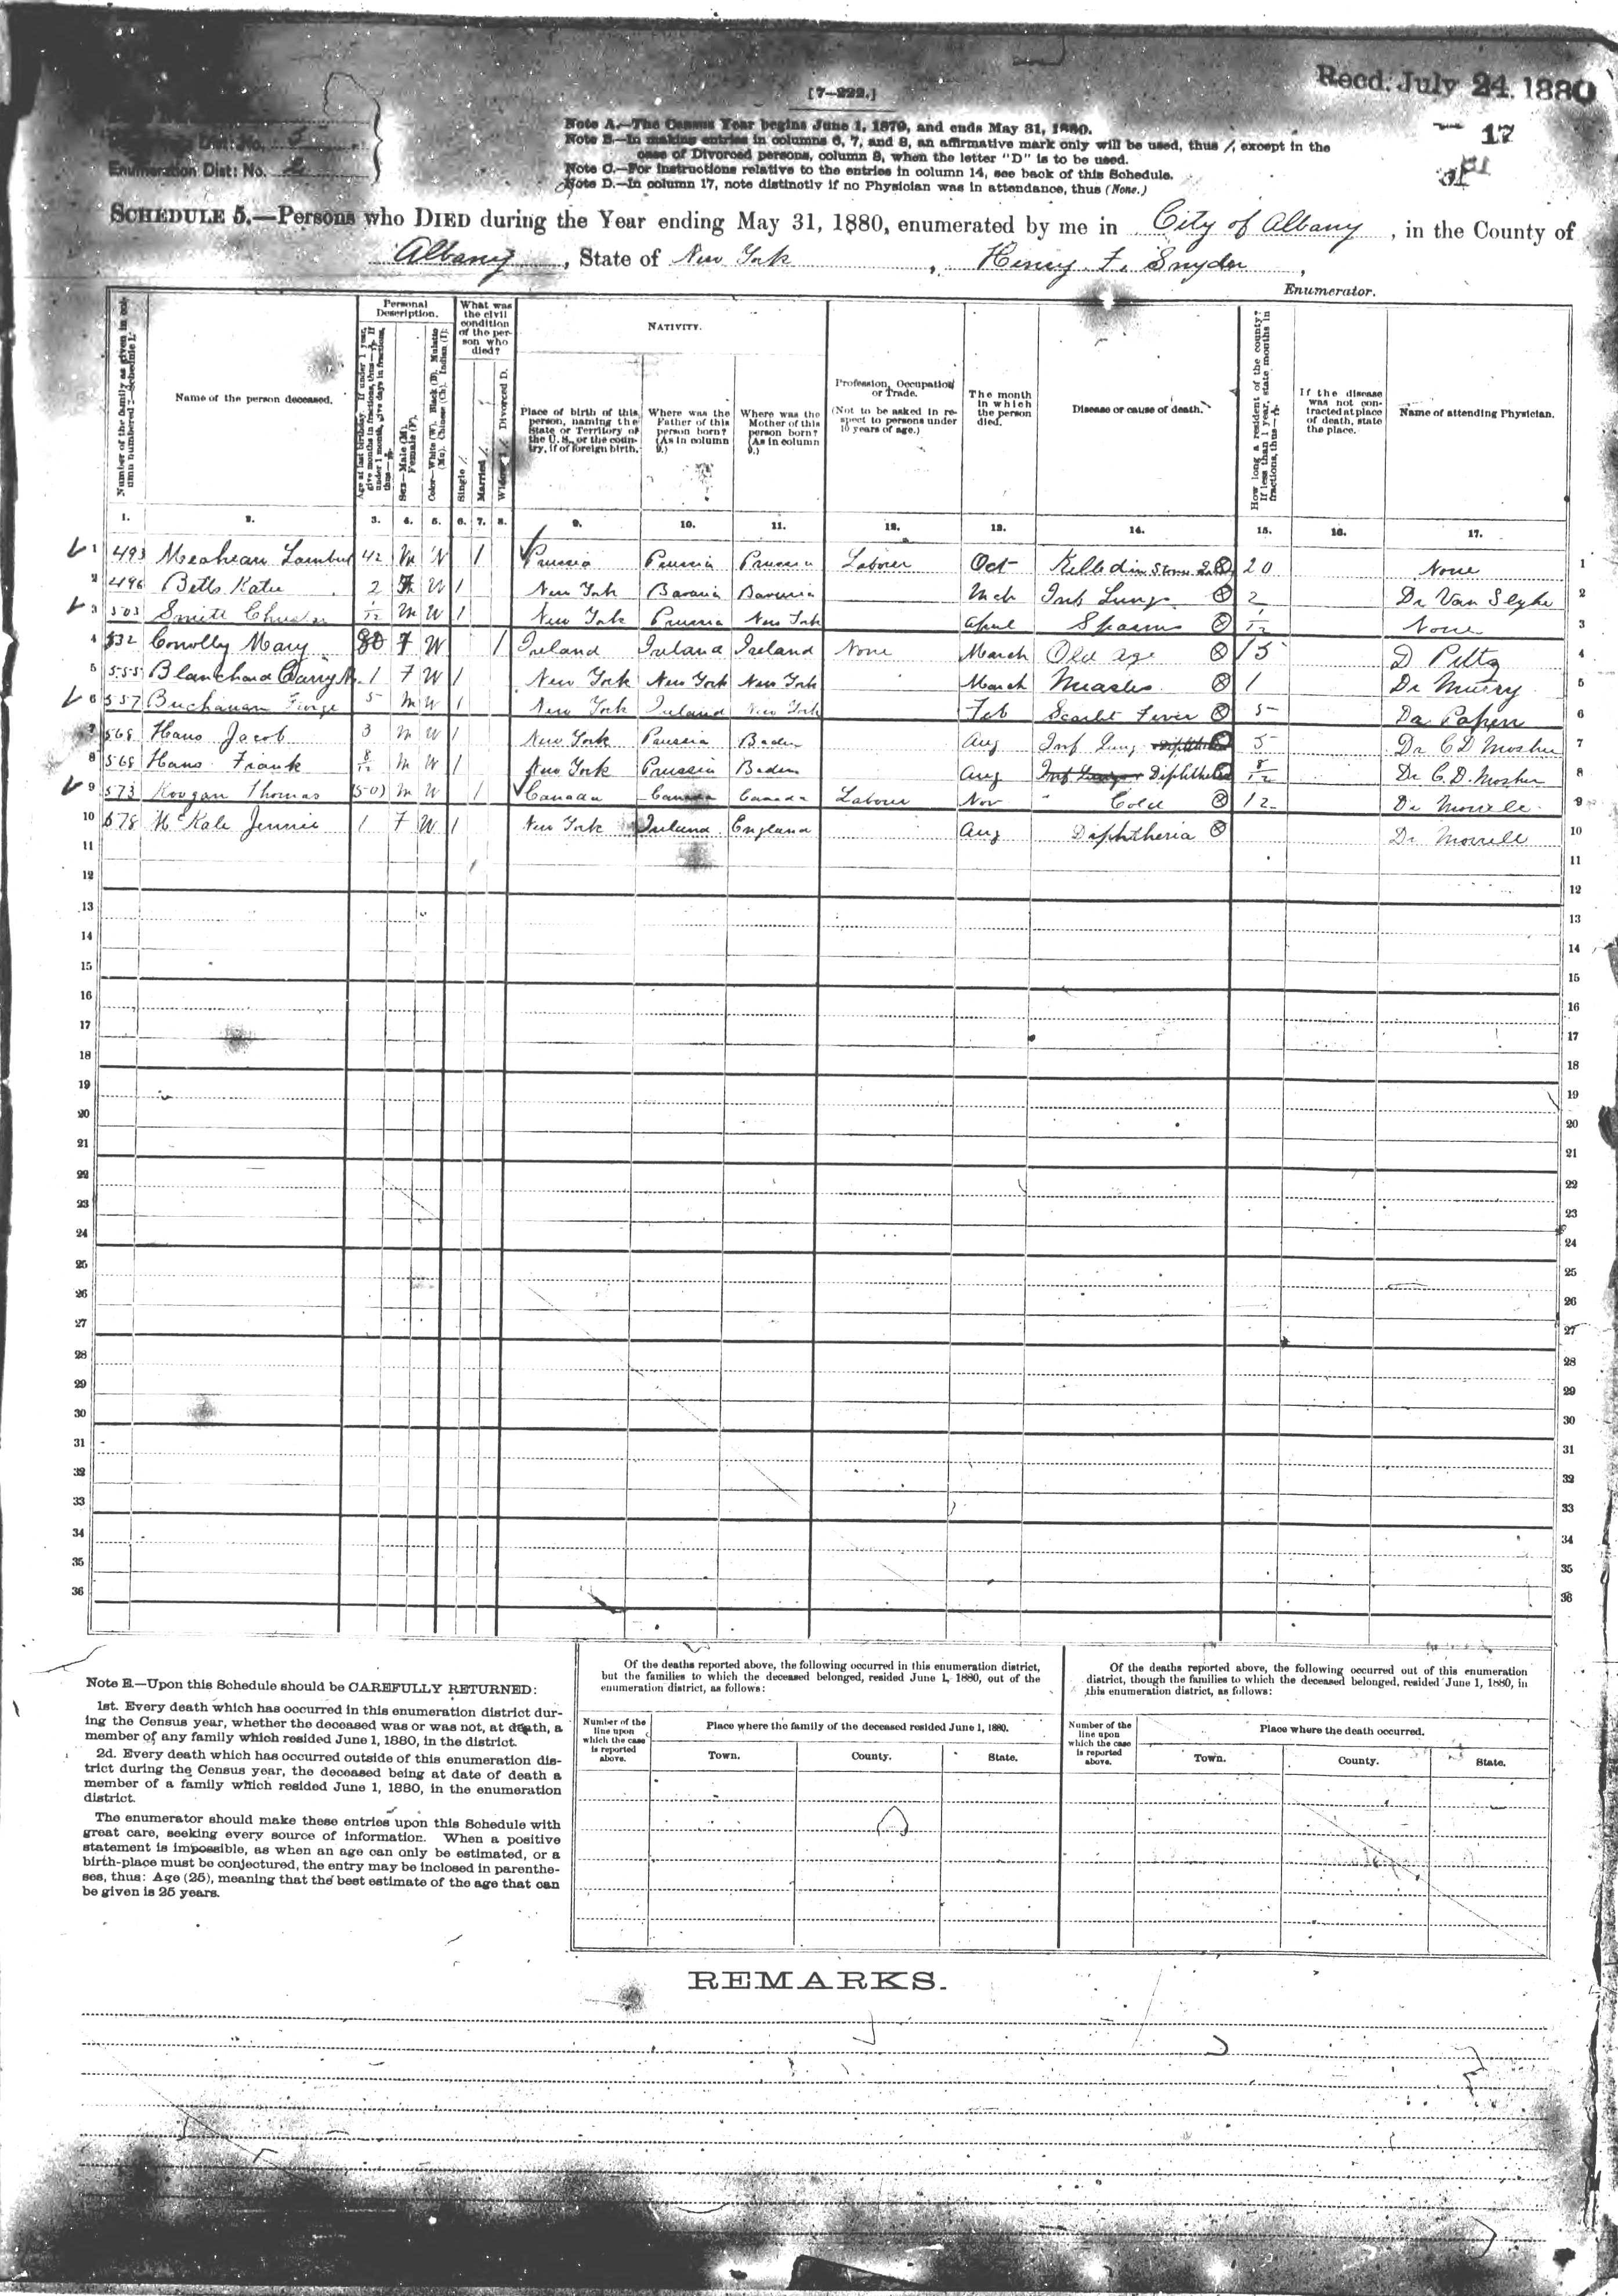 Recd. July 24. 1880
[7—222.]
17
Dist: No.
Enumeration Dist: No. 2
Note A.—The Census Year begins June 1, 1879, and ends May 31, 1880.
Note B.—In making entries in columns 6, 7, and 8, an affirmative mark only will be used, thus /, except in the
case of Divorced persons, column 8, when the letter "D" is to be used.
Note C.—For instructions relative to the entries in column 14, see back of this Schedule.
Note D.—In column 17, note distinctly if no Physician was in attendance, thus (None.)
SCHEDULE 5.—Persons who DIED during the Year ending May 31, 1880, enumerated by me in City of Albany, in the County of
Albany, State of New York, Henry F. Snyder,
Enumerator.
Number of the family as given in column numbered 2—Schedule 1.
Name of the person deceased.
Personal Description.
Age at last birthday. If under 1 year, give months in fractions, thus— If under 1 month, give days in fractions, thus—
Sex—Male (M), Female (F).
Color—White (W), Black (B), Mulatto (Mu), Chinese (Ch), Indian (I).
What was the civil condition of the person who died?
Single /.
Married /.
Widowed /. Divorced D.
NATIVITY.
Place of birth of this person, naming the State or Territory of the U.S., or the country, if of foreign birth.
Where was the Father of this person born? (As in column 9.)
Where was the Mother of this person born? (As in column 9.)
Profession, Occupation or Trade. (Not to be asked in respect to persons under 10 years of age.)
The month in which the person died.
Disease or cause of death.
How long a resident of the county? If less than 1 year, state months in fractions, thus—
If the disease was not contracted at place of death, state the place.
Name of attending Physician.
1. 2. 3. 4. 5. 6. 7. 8. 9. 10. 11. 12. 13. 14. 15. 16. 17.
1 493 42 M W / Prussia Prussia Prussia Laborer Oct Killed in Stone 20 None 1
2 496 Betts Katie 2 F W / New York Bavaria Bavaria Mch Inf Lungs 2 Dr Van Slyke 2
3 503 Smith 1/12 M W / New York Prussia New York April Spasms 1/12 None 3
4 532 Conolly Mary 80 F W / Ireland Ireland Ireland None March Old Age 15 D Peltz 4
5 555 Blanchard Carry 1 F W / New York New York New York March Measles 1 Dr Murry 5
6 557 Buchanan George 5 M W / New York Ireland New York Feb Scarlet Fever 5 Dr Papen 6
7 568 Hans Jacob 3 M W / New York Prussia Baden Aug Inf Lung 5 Dr C D Mosher 7
8 568 Hans Frank 8/12 M W / New York Prussia Baden Aug Diphtheria 8/12 Dr C. D. Mosher 8
9 573 Koogan Thomas (50) M W / Canada Canada Canada Laborer Nov Cold 12 Dr Morrell 9
10 578 McKale Jennie 1 F W / New York Ireland England Aug Diphtheria Dr Morrell 10
11 11
12 12
13 13
14 14
15 15
16 16
17 17
18 18
19 19
20 20
21 21
22 22
23 23
24 24
25 25
26 26
27 27
28 28
29 29
30 30
31 31
32 32
33 33
34 34
35 35
36 36
Note E.—Upon this Schedule should be CAREFULLY RETURNED:
1st. Every death which has occurred in this enumeration district dur-
ing the Census year, whether the deceased was or was not, at death, a
member of any family which resided June 1, 1880, in the district.
2d. Every death which has occurred outside of this enumeration dis-
trict during the Census year, the deceased being at date of death a
member of a family which resided June 1, 1880, in the enumeration
district.
The enumerator should make these entries upon this Schedule with
great care, seeking every source of information. When a positive
statement is impossible, as when an age can only be estimated, or a
birth-place must be conjectured, the entry may be inclosed in parenthe-
ses, thus: Age (25), meaning that the best estimate of the age that can
be given is 25 years.
Of the deaths reported above, the following occurred in this enumeration district,
but the families to which the deceased belonged, resided June 1, 1880, out of the
enumeration district, as follows:
Number of the line upon which the case is reported above.
Place where the family of the deceased resided June 1, 1880.
Town. County. State.
Of the deaths reported above, the following occurred out of this enumeration
district, though the families to which the deceased belonged, resided June 1, 1880, in
this enumeration district, as follows:
Number of the line upon which the case is reported above.
Place where the death occurred.
Town. County. State.
REMARKS.